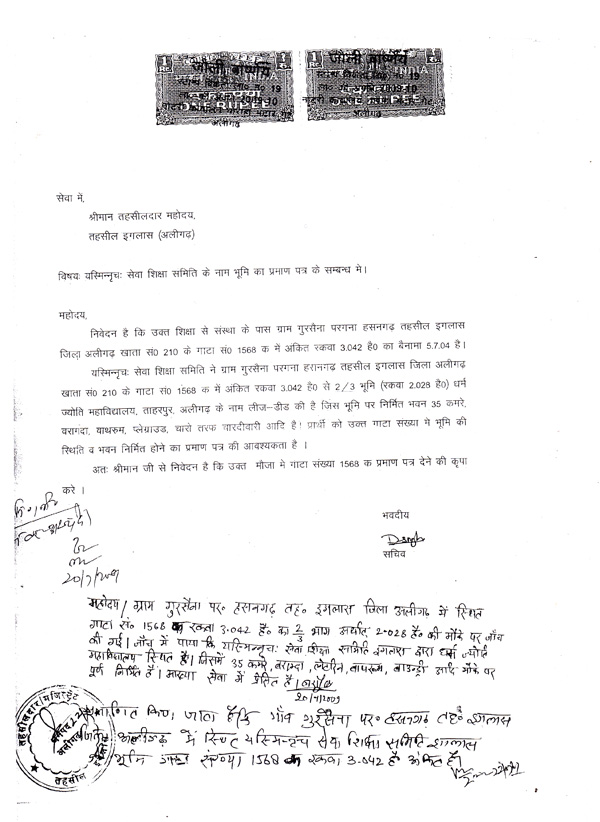 जौली वार्ष्णेय
जौली वार्ष्णेय
ला० नं० 19
19
ONE RUPEE
अलीगढ़
अलीगढ़
सेवा में,
श्रीमान तहसीलदार महोदय,
तहसील इगलास (अलीगढ़)
विषयः यस्मिन्नृचः सेवा शिक्षा समिति के नाम भूमि का प्रमाण पत्र के सम्बन्ध मे।
महोदय,
निवेदन है कि उक्त शिक्षा से संस्था के पास ग्राम गुरसैना परगना हसनगढ़ तहसील इगलास
जिला अलीगढ़ खाता सं0 210 के गाटा सं0 1568 क में अंकित रकवा 3.042 है0 का बैनामा 5.7.04 है।
यस्मिन्नृचः सेवा शिक्षा समिति ने ग्राम गुरसैना परगना हसनगढ़ तहसील इगलास जिला अलीगढ़
खाता सं0 210 के गाटा सं0 1568 क में अंकित रकवा 3.042 है0 से 2/3 भूमि (रकवा 2.028 है0) धर्म
ज्योति महाविद्यालय, ताहरपुर, अलीगढ़ के नाम लीज-डीड की है जिस भूमि पर निर्मित भवन 35 कमरे,
बरामदा, बाथरुम, प्लेग्राउड, चारो तरफ चारदीवारी आदि है। प्रार्थी को उक्त गाटा सख्या मे भूमि की
स्थिति व भवन निर्मित होने का प्रमाण पत्र की आवश्यकता है ।
अतः श्रीमान जी से निवेदन है कि उक्त मौजा मे गाटा संख्या 1568 क प्रमाण पत्र देने की कृपा
करे ।
भवदीय
सचिव
20/7/2009
महोदय/ ग्राम गुरसैना पर० हसनगढ़ तह० इगलास जिला अलीगढ़ में स्थित
गाटा सं० 1568 क रकवा 3.042 है० का 2/3 भाग अर्थात् 2.028 है० की मौके पर जाँच
की गई। जाँच में पाया कि यस्मिन्नृचः सेवा शिक्षा समिति इगलास द्वारा धर्म ज्योति
महाविद्यालय स्थित है। जिसमें 35 कमरे, बरामदा, लेटरीन, बाथरूम, बाउन्ड्री आदि मौके पर
पूर्ण निर्मित है। आख्या सेवा में प्रेषित है।
20/7/2009
प्रमाणित किया जाता है कि गाँव गुरसैना पर० हसनगढ़ तह० इगलास
जिला अलीगढ़ में स्थित यस्मिन्नृचः सेवा शिक्षा समिति इगलास
भूमि गाटा संख्या 1568 क रकवा 3.042 है० अंकित है।
तहसीलदार/मजिस्ट्रेट
तहसील